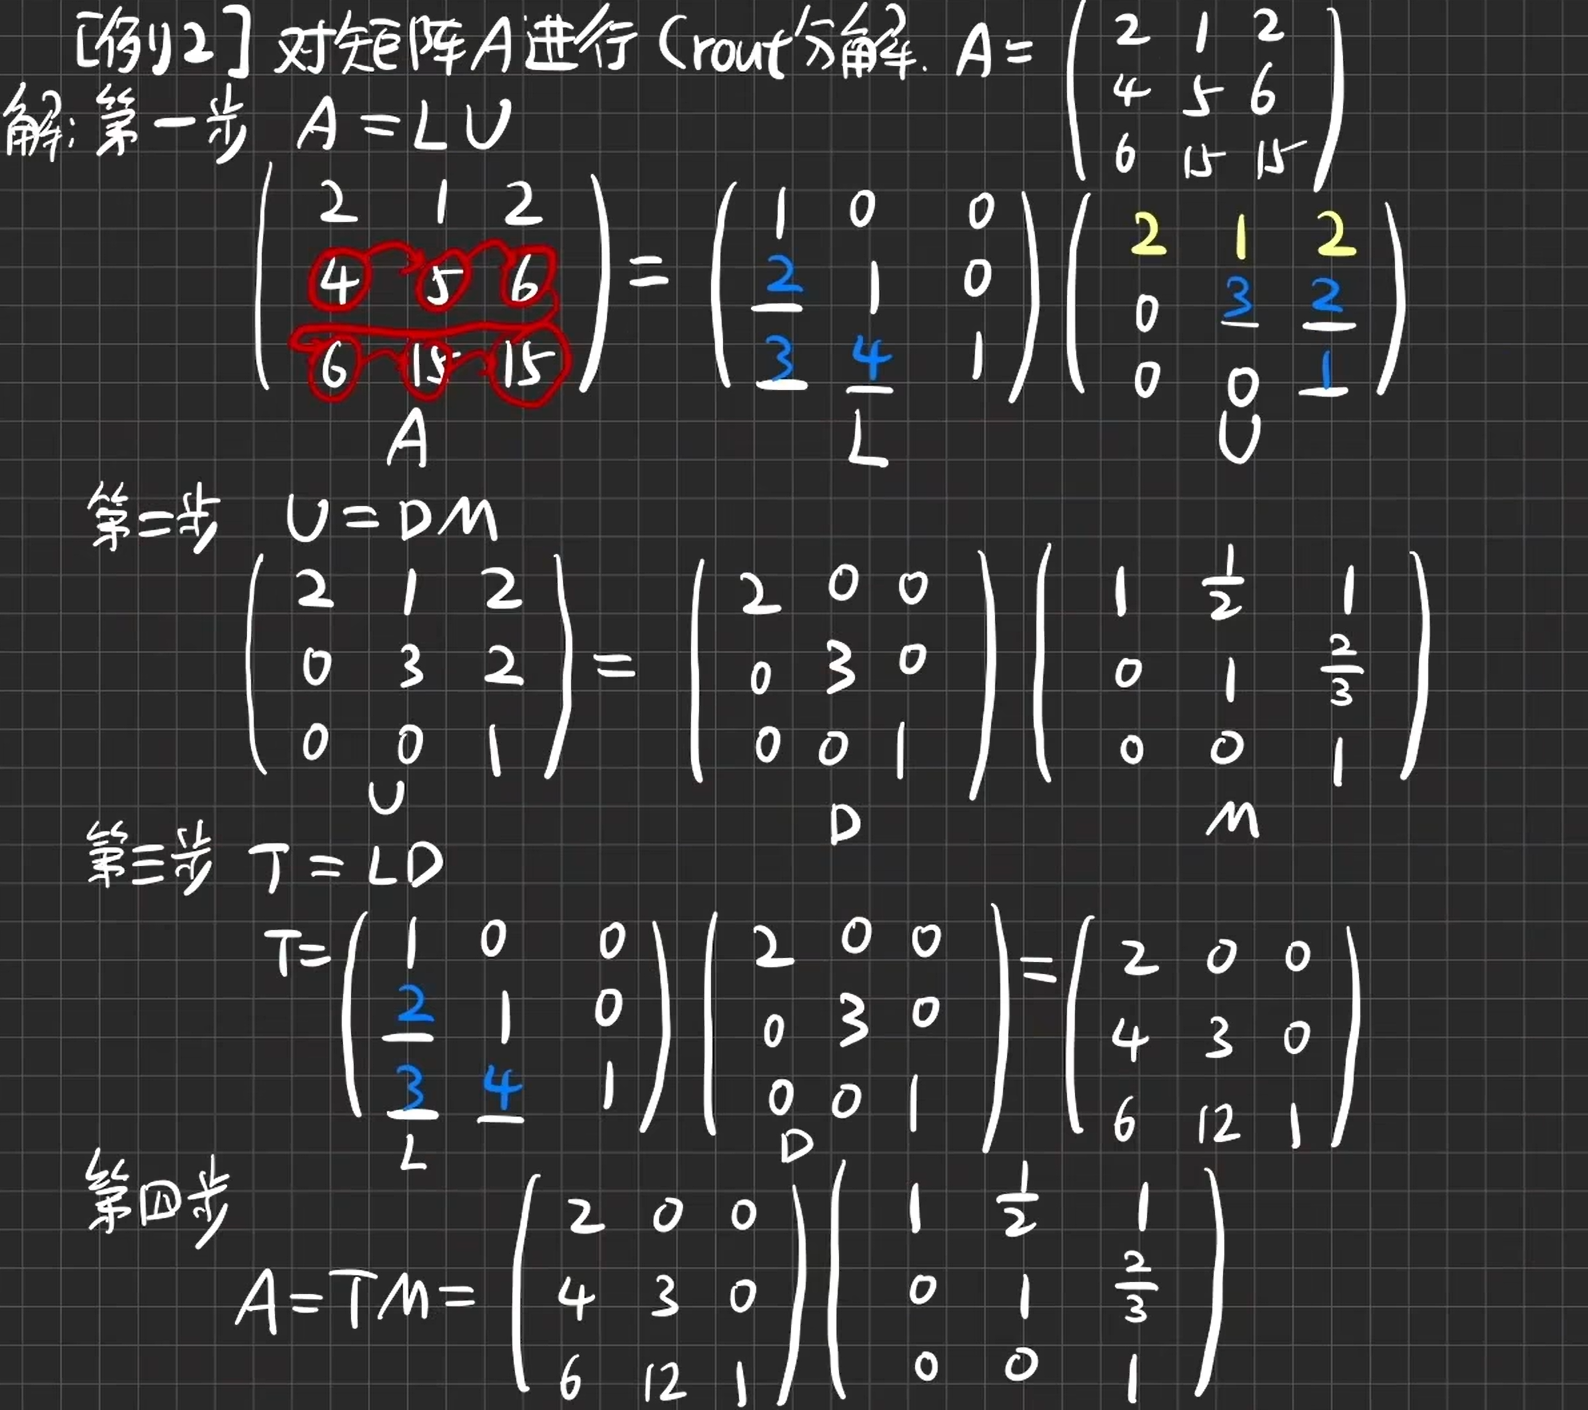 [例2] 对矩阵A进行Crout分解. A = ( 2 1 2
4 5 6
6 15 15 )
解: 第一步 A = LU
( 2 1 2
4 5 6
6 15 15 ) = ( 1 0 0
2 1 0
3 4 1 ) ( 2 1 2
0 3 2
0 0 1 )
A L U
第二步 U = DM
( 2 1 2
0 3 2
0 0 1 ) = ( 2 0 0
0 3 0
0 0 1 ) ( 1 1/2 1
0 1 2/3
0 0 1 )
U D M
第三步 T = LD
T = ( 1 0 0
2 1 0
3 4 1 ) ( 2 0 0
0 3 0
0 0 1 ) = ( 2 0 0
4 3 0
6 12 1 )
L D
第四步
A = TM = ( 2 0 0
4 3 0
6 12 1 ) ( 1 1/2 1
0 1 2/3
0 0 1 )